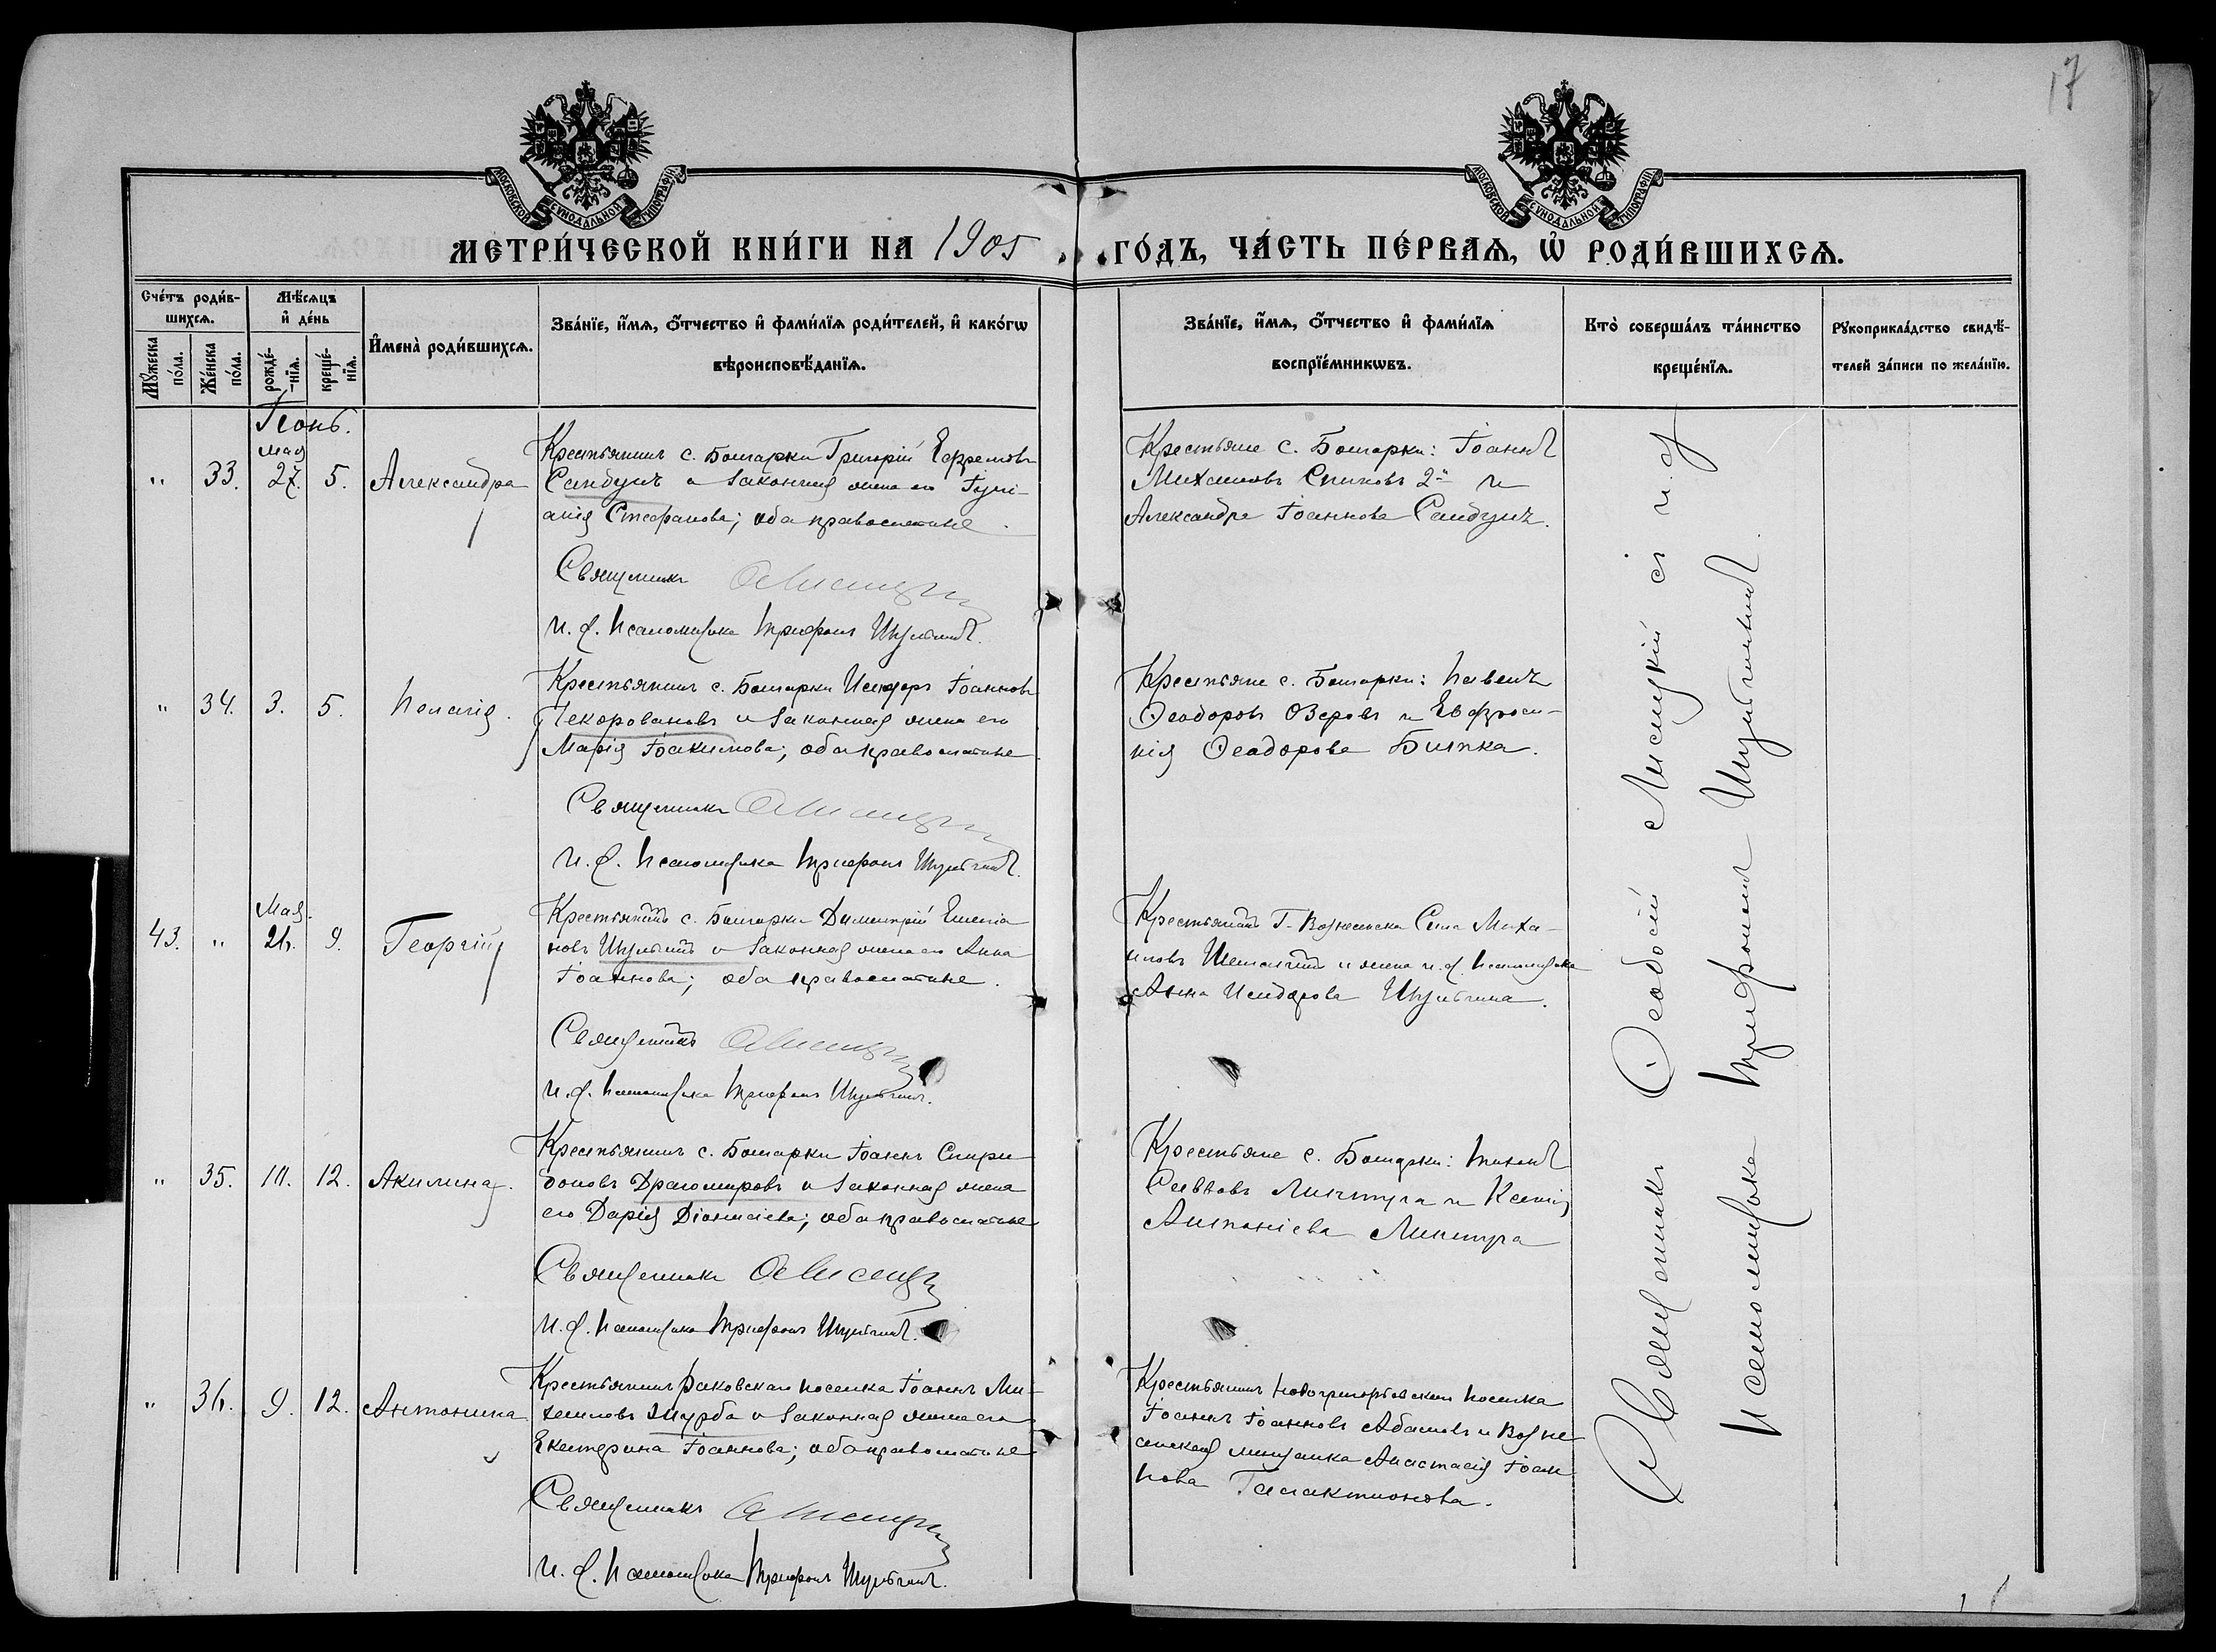 17
МОСКОВСКОЙ СУНОДАЛЬНОЙ ТИПОГРАФІИ
МОСКОВСКОЙ СУНОДАЛЬНОЙ ТИПОГРАФІИ
МЕТРИ́ЧЕСКОЙ КНИ́ГИ НА 1905 ГО́ДЪ, ЧА́СТЬ ПЕ́РВАѦ, Ѡ҆ РОДИ́ВШИХСѦ.
Сче́тъ роди́в-
шихсѧ.
Мꙋ́жеска по́ла.
Же́нска по́ла.
Мѣ́сѧцъ
и҆ де́нь
рожде́-
нїѧ.
креще́-
нїѧ.
И҆мена̀ роди́вшихсѧ.
Зва́нїе, и҆́мѧ, ѻ҆́тчество и҆ фами́лїѧ роди́телей, и҆ како́гѡ
вѣроисповѣ́данїѧ.
Зва́нїе, и҆́мѧ, ѻ҆́тчество и҆ фами́лїѧ
воспрїе́мникѡвъ.
Кто̀ соверша́лъ та́инство
креще́нїѧ.
Рꙋкоприкла́дство свидѣ́-
телей за́писи по жела́нїю.
Іюнь.
" 33. мая 27. 5. Александра
Крестьянинъ с. Боштарки Григорій Ефремовъ
Сандулъ и законная жена его Іулі-
анія Стефанова; оба православные.
Священникъ
И. д. Псаломщика Трифонъ Шульгинъ.
Крестьяне с. Боштарки: Іоаннъ
Михаиловъ Спиновъ 2й и
Александра Іоаннова Сандулъ.
" 34. 3. 5. Пелагія.
Крестьянинъ с. Боштарки Исидоръ Іоанновъ
Чекоровановъ и законная жена его
Марія Іоакимова; оба православные.
Священникъ
И. д. Псаломщика Трифонъ Шульгинъ.
Крестьяне с. Боштарки: Павелъ
Ѳеодоровъ Озеровъ и Евфроси-
нія Ѳеодорова Битка.
43. " Мая. 26. 9. Георгій
Крестьянинъ с. Боштарки Димитрій Емелія
новъ Шульгинъ и законная жена его Анна
Іоаннова; оба православные.
Священникъ
И. д. Псаломщика Трифонъ Шульгинъ.
Крестьянинъ Г. Вознесенска Сила Миха-
иловъ и жена и. д. Псаломщика
Анна Исидорова Шульгина.
" 35. 10. 12. Акилина.
Крестьянинъ с. Боштарки Іоаннъ Спири
доновъ Драгомировъ и законная жена
его Дарія Діонисіева; оба православные
Священникъ Ѳ. Лисицкій
И. д. Псаломщика Трифонъ Шульгинъ.
Крестьяне с. Боштарки: Тихонъ
Саввовъ Линтура и Ксенія
Антоніева Линтура
" 36. 9. 12. Антонина
Крестьянинъ Раковскаго поселка Іоаннъ Ми-
хаиловъ Шурба и законная жена его
Екатерина Іоаннова; оба православные
Священникъ
И. д. Псаломщика Трифонъ Шульгинъ.
Крестьянинъ Новогригорьевскаго поселка
Іоаннъ Іоанновъ Абашовъ и Возне
сенская мещанка Анастасія Іоан
нова Галактионова.
Священникъ Ѳеодосій Лисицкій съ и. д
Псаломщика Трифономъ Шульгинымъ.